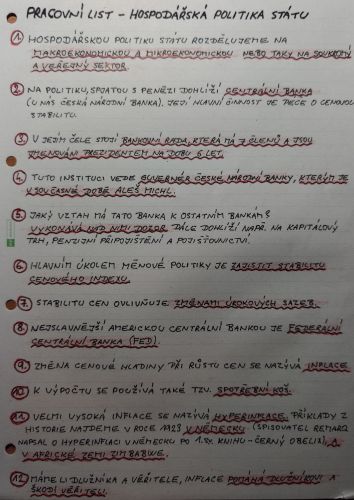 PRACOVNÍ LIST - HOSPODÁŘSKÁ POLITIKA STÁTU
1. HOSPODÁŘSKOU POLITIKU STÁTU ROZDĚLUJEME NA
MAKROEKONOMICKOU A MIKROEKONOMICKOU NEBO TAKY NA SOUKROMÝ
A VEŘEJNÝ SEKTOR.
2. NA POLITIKU, SPJATOU S PENĚZI DOHLÍŽÍ CENTRÁLNÍ BANKA
(U NÁS ČESKÁ NÁRODNÍ BANKA). JEJÍ HLAVNÍ ČINNOST JE PÉČE O CENOVOU
STABILITU.
3. V JEJÍM ČELE STOJÍ BANKOVNÍ RADA, KTERÁ MÁ 7 ČLENŮ A JSOU
JMENOVÁNI PREZIDENTEM NA DOBU 6 LET.
4. TUTO INSTITUCI VEDE GUVERNÉR ČESKÉ NÁRODNÍ BANKY, KTERÝM JE
V SOUČASNÉ DOBĚ ALEŠ MICHL.
5. JAKÝ VZTAH MÁ TATO BANKA K OSTATNÍM BANKÁM?
VYKONÁVÁ NAD NIMI DOZOR. DÁLE DOHLÍŽÍ NAPŘ. NA KAPITÁLOVÝ
TRH, PENZIJNÍ PŘIPOJIŠTĚNÍ A POJIŠŤOVNICTVÍ.
6. HLAVNÍM ÚKOLEM MĚNOVÉ POLITIKY JE ZAJISTIT STABILITU
CENOVÉHO INDEXU.
7. STABILITU CEN OVLIVŇUJE ZMĚNAMI ÚROKOVÝCH SAZEB.
8. NEJSLAVNĚJŠÍ AMERICKOU CENTRÁLNÍ BANKOU JE FEDERÁLNÍ
CENTRÁLNÍ BANKA (FED).
9. ZMĚNA CENOVÉ HLADINY PŘI RŮSTU CEN SE NAZÝVÁ INFLACE
10. K VÝPOČTU SE POUŽÍVÁ TAKÉ TZV. SPOTŘEBNÍ KOŠ.
11. VELMI VYSOKÁ INFLACE SE NAZÝVÁ HYPERINFLACE. PŘÍKLADY Z
HISTORIE NAJDEME V ROCE 1923 V NĚMECKU (SPISOVATEL REMARQ
NAPSAL O HYPERINFLACI V NĚMECKU PO 1.SV. KNIHU - ČERNÝ OBELISK), A
V AFRICKÉ ZEMI ZIMBABWE.
12. MÁME LI DLUŽNÍKA A VĚŘITELE, INFLACE POMÁHÁ DLUŽNÍKOVI A
ŠKODÍ VĚŘITELI.